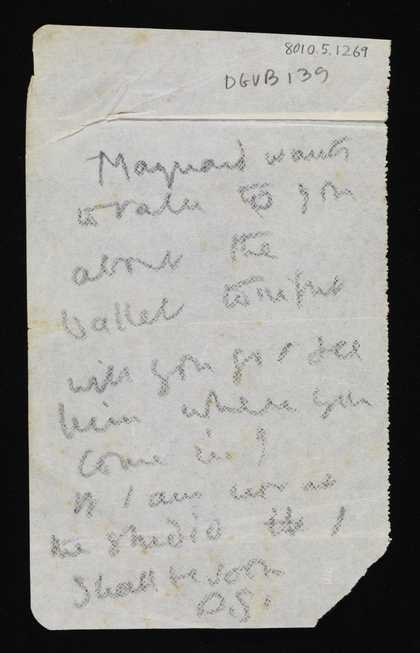 8010.5.1269
DGVB139
Maynard wants
to talk to you
about the
ballet tonight
will you go & see
him when you
come in?
If I am not in
the studio I
shall be soon
D.G.